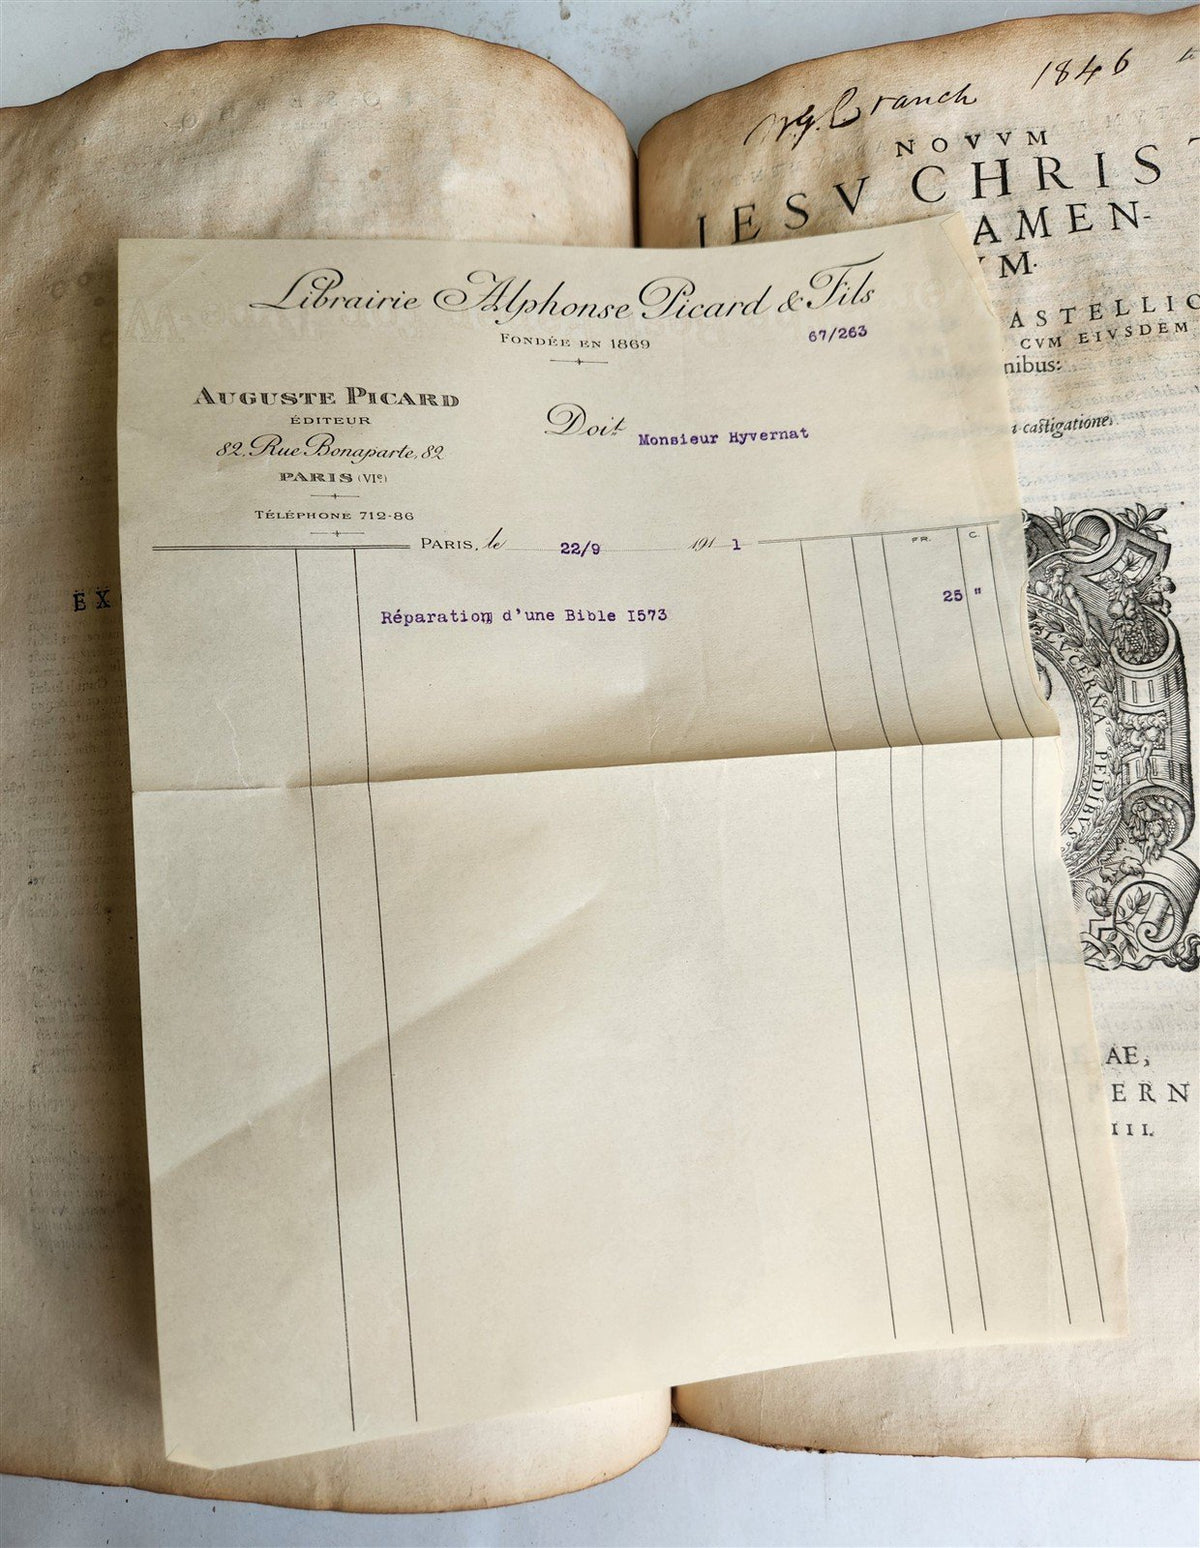 W.G. Cranch 1846
NOVVM
IESV CHRIST
AMEN-
VM.
ASTELLIO
CVM EIVSDEM
nibus:
castigatione.
LVCERNA PEDIBVS
AE,
ERN
III.
EX
Librairie Alphonse Picard & Fils
FONDÉE EN 1869
67/263
AUGUSTE PICARD
ÉDITEUR
82, Rue Bonaparte, 82
PARIS (VIe)
TÉLÉPHONE 712-86
Doit Monsieur Hyvernat
PARIS, le 22/9 191 1
FR. C.
Réparation d'une Bible I573 25 "